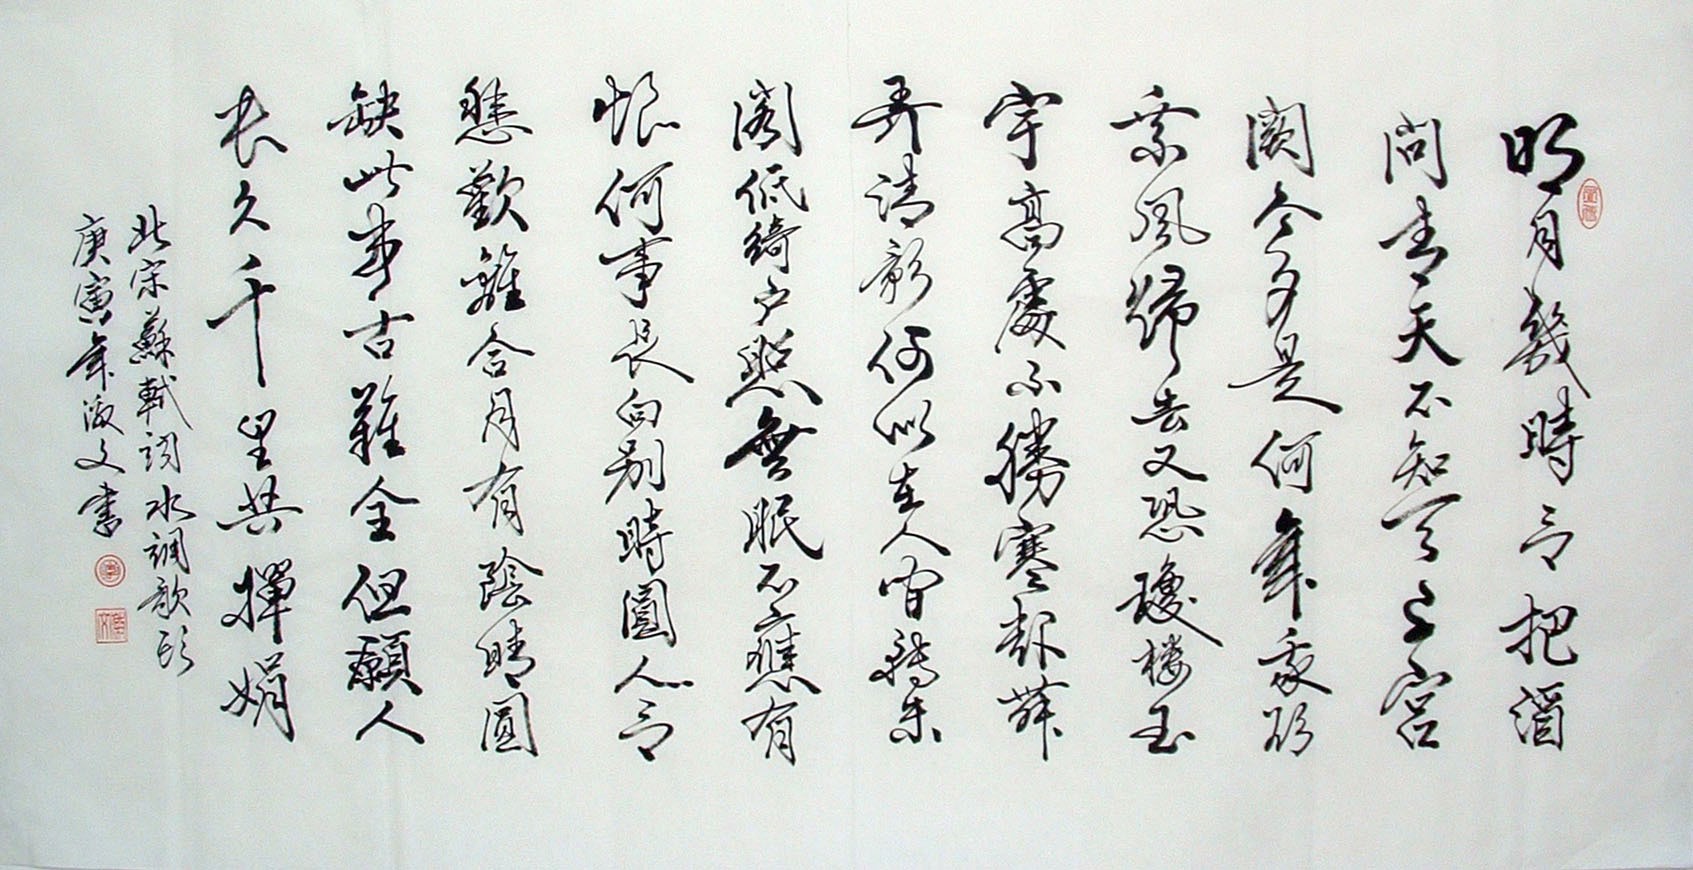 明月幾時有把酒
問青天不知天上宮
闕今夕是何年我欲
乘風歸去又恐瓊楼玉
宇高處不勝寒起舞
弄清影何似在人间轉朱
阁低綺户照無眠不應有
恨何事長向别時圓人有
悲歡離合月有陰晴圓
缺此事古難全但願人
长久千里共嬋娟
北宋蘇軾词水調歌头
庚寅年文書